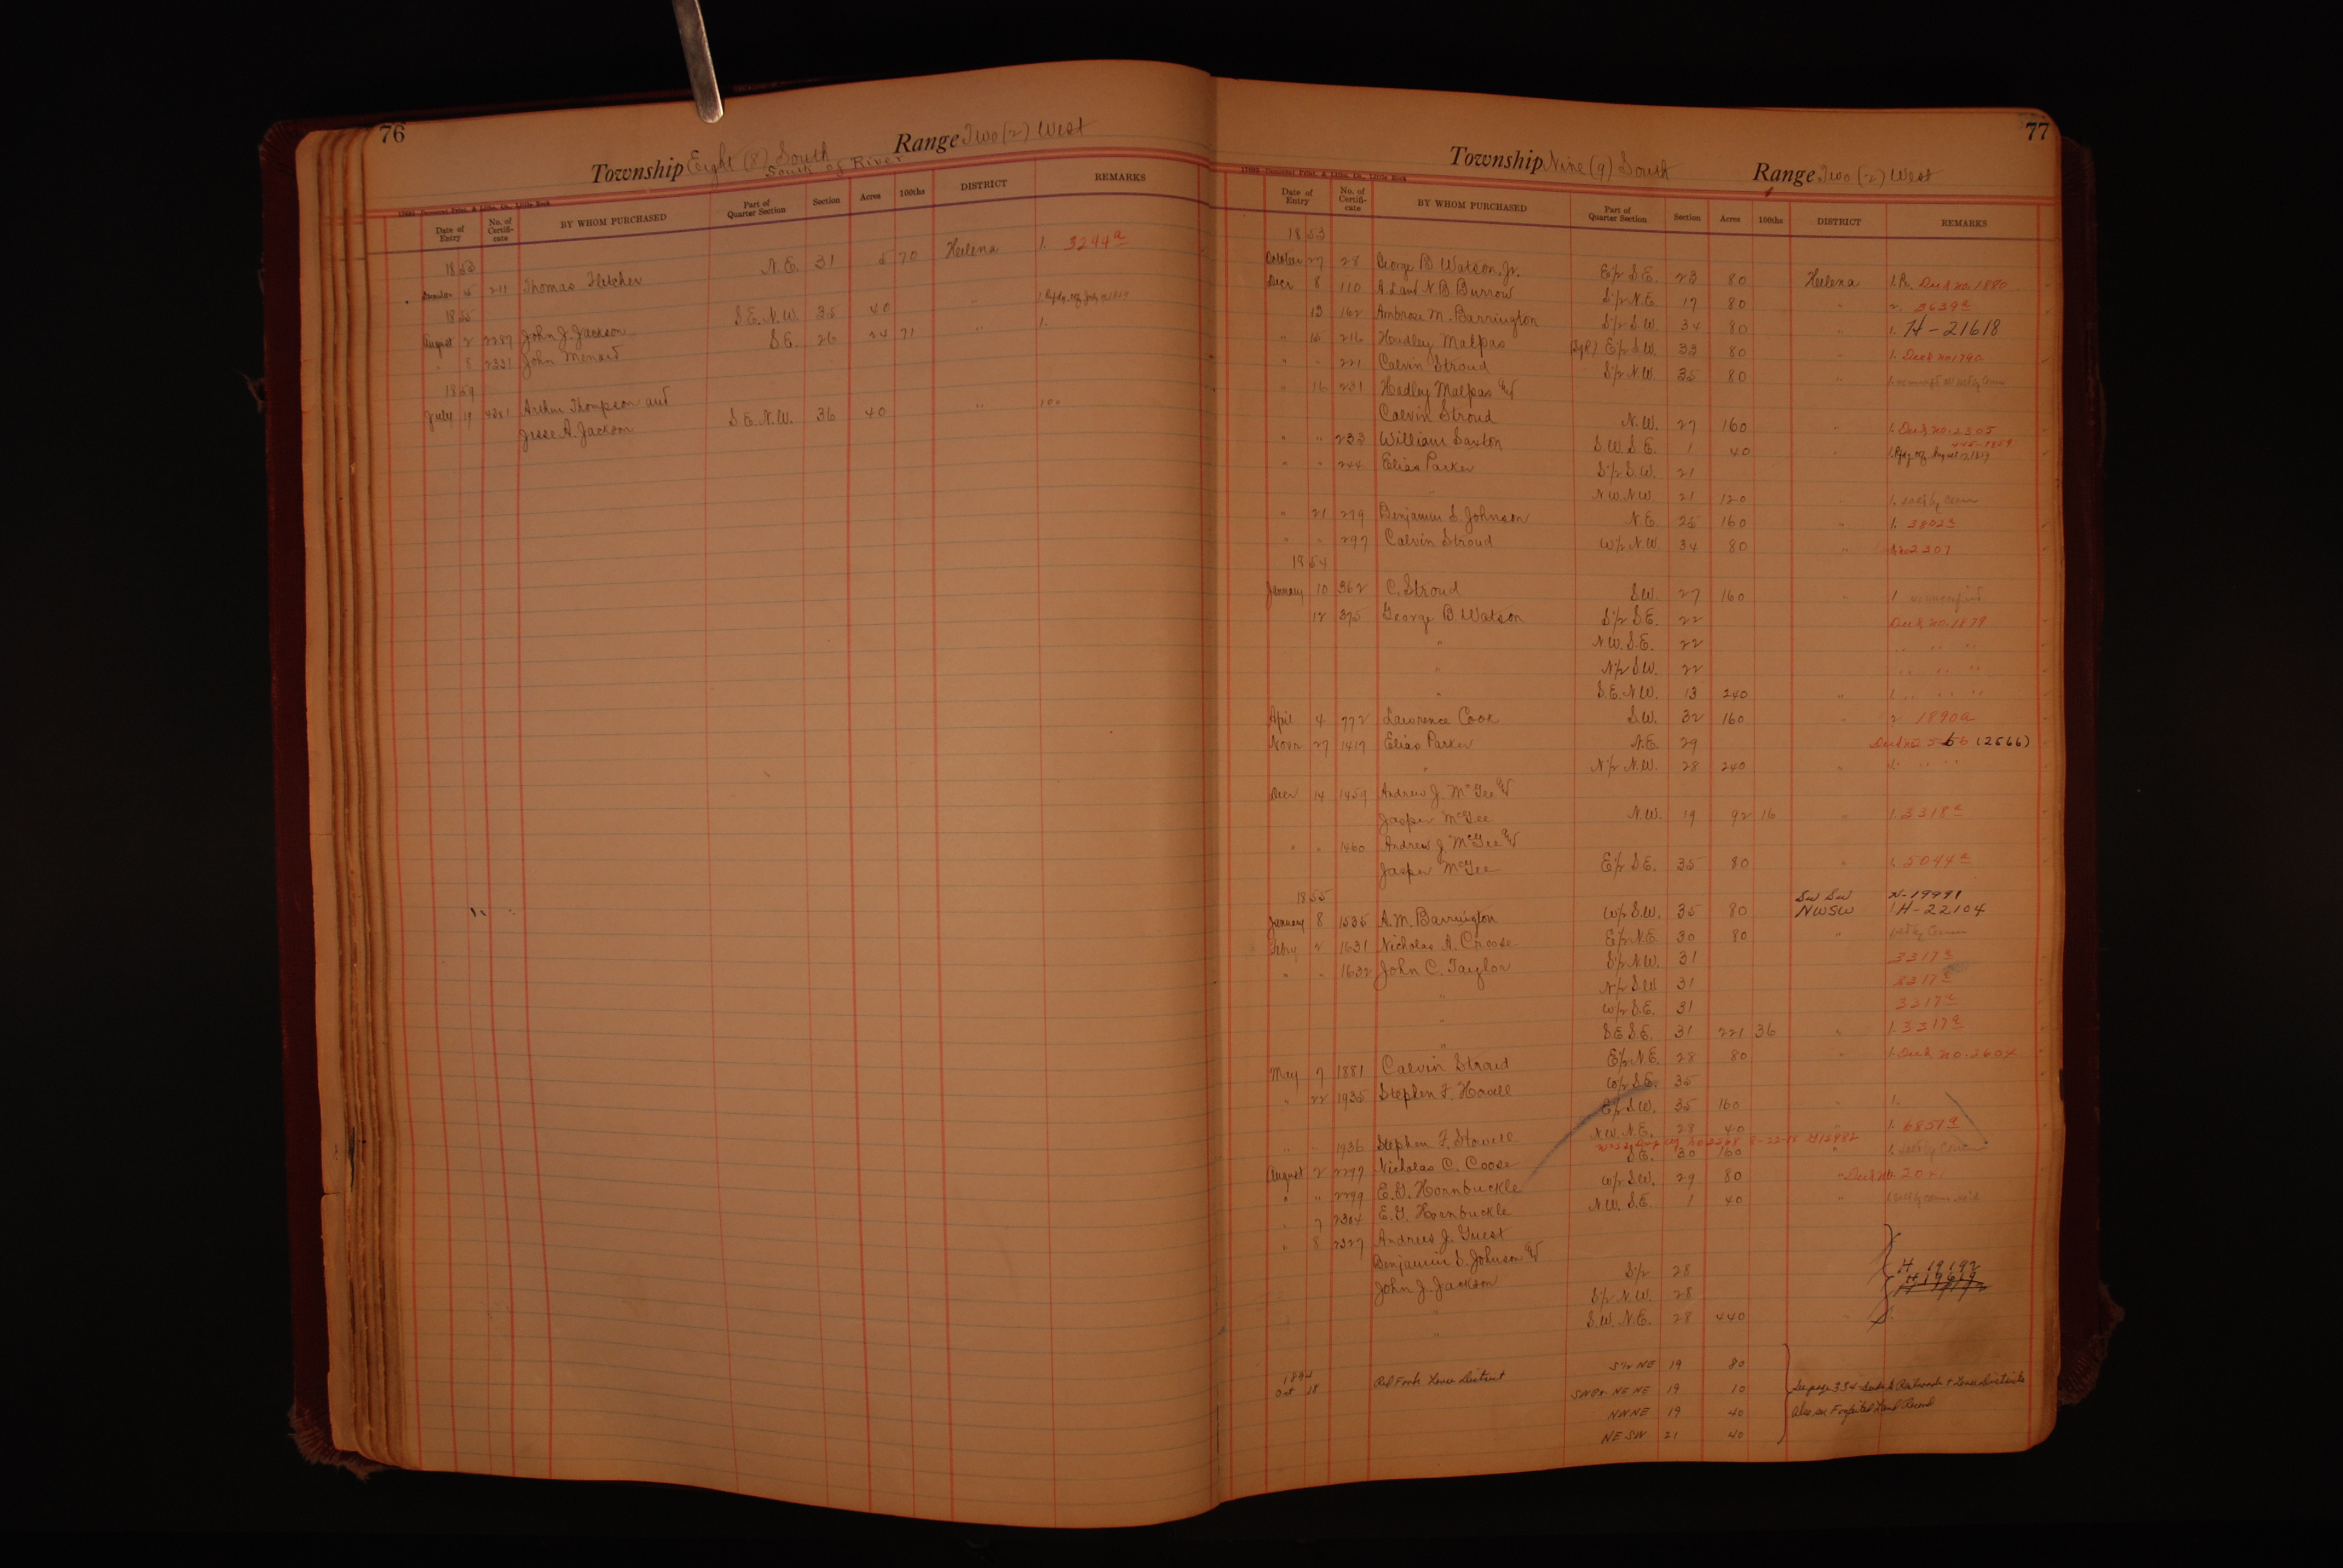 76
Township Eight (8) South Range Two (2) West
South of River
Date of Entry No. of Certificate BY WHOM PURCHASED Part of Quarter Section Section Acres 100ths DISTRICT REMARKS
1853
5 211 Thomas Fletcher N.E. 31 5 70 Helena 1. 3244a
1855
August 2 2287 John J. Jackson S.E. N.W. 35 40 "
" 5 2331 John Menard S.E. 26 24 71 " 1.
1859
July 19 Arthur Thompson and
Jesse A. Jackson S.E. N.W. 36 40 "
77
Township Nine (9) South Range Two (2) West
Date of Entry No. of Certificate BY WHOM PURCHASED Part of Quarter Section Section Acres 100ths DISTRICT REMARKS
1853
October 27 28 George B Watson, Jr. E½ S.E. 23 80 Helena Deed no. 1880
Decr 8 110 A L and N.B. Burrow S½ N.E. 17 80 " 2. 3639a
13 162 Ambrose M. Barrington S½ S.W. 34 80 " 1. H-21618
" 15 216 Hadley Malpas E½ S.W. 33 80 " 1. Deed no 1790
" " 221 Calvin Stroud S½ N.W. 35 80 "
" 16 231 Hadley Malpas &
Calvin Stroud N.W. 27 160 " 1. Deed no. 2305
" " 233 William Saxton S.W. S.E. 1 40 "
" " 244 Elias Parker S½ S.W. 21
" N.W. N.W. 21 120 "
" 21 279 Benjamin S. Johnson N.E. 25 160 " 1. 3802a
" " 297 Calvin Stroud W½ N.W. 34 80 " no 2307
1854
January 10 362 C. Stroud S.W. 27 160 " 1.
12 375 George B Watson S½ S.E. 22 Deed no. 1879
" N.W. S.E. 22 " " "
" N½ S.W. 22 " " "
" S.E. N.W. 13 240 " 1. " " "
April 4 772 Lawrence Cook S.W. 32 160 " 2 1890a
Novr 27 1417 Elias Parker N.E. 29 (2566)
" N½ N.W. 28 240 "
Decr 14 1459 Andrew J. McGee &
Jasper McGee N.W. 19 92 16 " 1. 3318a
" " 1460 Andrew J. McGee &
Jasper McGee E½ S.E. 35 80 " 1. 5044a
1855 SW SW N-19991
January 8 1535 A.M. Barrington W½ S.W. 35 80 NWSW H-22104
Febry 2 1631 Nicholas A. Choose E½ N.E. 30 80 "
" " 1632 John C. Taylor S½ N.W. 31 3317a
" N½ S.W. 31 3317a
" W½ S.E. 31 3317a
" S.E. S.E. 31 221 36 " 1. 3317a
May 7 1881 Calvin Straud E½ N.E. 28 80 " 1. Deed no. 2604
" 22 1935 Stephen F. Howell W½ S.E. 35
E½ S.W. 35 160 " 1.
" " 1936 Stephen F. Howell N.W. N.E. 28 40 " 1. 6851a
August 2 2297 Nicholas C. Coose S.E. 30 160 "
" " 2299 E.G. Hornbuckle W½ S.W. 29 80 "
" 7 2304 E.G. Hornbuckle N.W. S.E. 1 40 "
" 8 2327 Andrew J. Guest
Benjamin S. Johnson &
John J. Jackson S½ 28 H 19192
S½ N.W. 28 H 19619
" S.W. N.E. 28 440
S½ NE 19 80
Oct 18 Red Fork Levee District NE NE 19 10 See page 334 Railroads & Levee Districts
NWNE 19 40 Also see Forfeited Land Record
NE SW 21 40